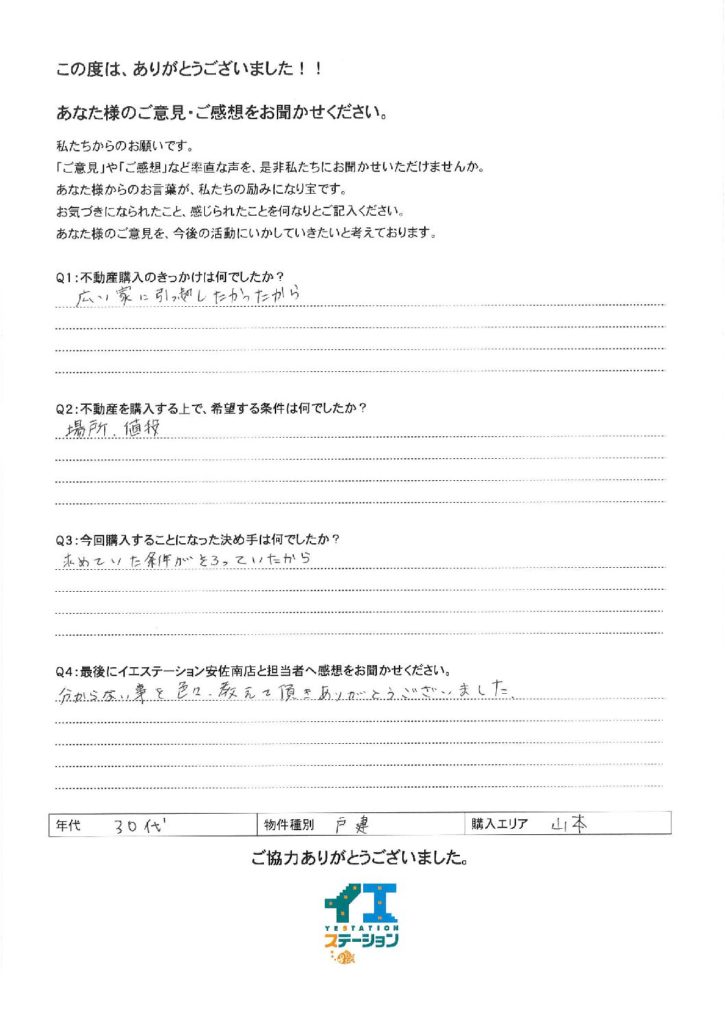 この度は、ありがとうございました！！
あなた様のご意見・ご感想をお聞かせください。
私たちからのお願いです。
「ご意見」や「ご感想」など率直な声を、是非私たちにお聞かせいただけませんか。
あなた様からのお言葉が、私たちの励みになり宝です。
お気づきになられたこと、感じられたことを何なりとご記入ください。
あなた様のご意見を、今後の活動にいかしていきたいと考えております。
Q1：不動産購入のきっかけは何でしたか？
広い家に引っ越したかったから
Q2：不動産を購入する上で、希望する条件は何でしたか？
場所、値段
Q3：今回購入することになった決め手は何でしたか？
求めていた条件がそろっていたから
Q4：最後にイエステーション安佐南店と担当者へ感想をお聞かせください。
分からない事を色々、教えて頂きありがとうございました。
年代 30代 物件種別 戸建 購入エリア 山本
ご協力ありがとうございました。
イエ
YESTATION
ステーション